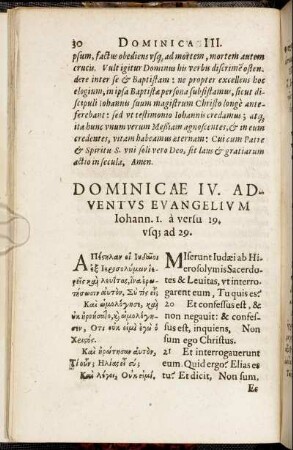 30 DOMINICA III.
psum, factus obediens vsq́, ad mortem, mortem autem
crucis. Vult igitur Dominus his verbis discrimē osten-
dere inter se & Baptistam: ne propter excellens hoc
elogium, in ipsa Baptistæ persona subsistamus, sicut di-
scipuli Iohannis suum magistrum Christo longè ante-
ferebant: sed vt testimonio Iohannis credamus; atq́,
ita hunc vnum verum Messiam agnoscentes, & in eum
credentes, vitam habeamus æternam: Cui cum Patre
& Spiritu S. vni soli vero Deo, sit laus & gratiarum
actio in secula. Amen.
DOMINICAE IV. AD-
VENTVS EVANGELIVM
Iohann. 1. à versu 19.
vsq; ad 29.
ΑΠέςειλαν οἱ Ἰυδαῖοι
ἐξ Ἱεροσολύμων ἱερ-
εῖς καὶ λουΐτας, ἵνα ἐρω-
τήσωσιν αὐτὸν, Σὺ τίς εἶ;
καὶ ὡμολόγησε, καὶ
οὐκ ἠρνήσατο, καὶ ὡμολόγη-
σεν, Ὅτι οὐκ εἰμὶ ἐγὼ ὁ
Χριςός.
Καὶ ἠρώτησαν αὐτὸν,
Τί οὖν; Ἠλίας εἶ σύ;
Καὶ λέγει, Οὐκ εἰμί.
MIserunt Iudæi ab Hi-
erosolymis Sacerdo-
tes & Leuitas, vt interro-
garent eum, Tu quis es?
20 Et confessus est, &
non negauit: & confes-
sus est, inquiens, Non
sum ego Christus.
21 Et interrogauerunt
eum. Quid ergo? Elias es
tu? Et dicit, Non sum.
Es